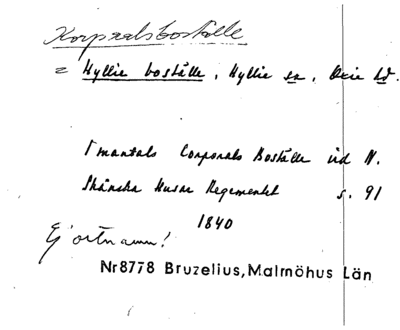 Korpralsboställe
= Hyllie boställe, Hyllie sn, Oxie hd.
1 mantals Corporals Boställe vid N.
Skånska Husar Regementet s. 91
1840
Ej ortnamn!
Nr 8778 Bruzelius, Malmöhus Län